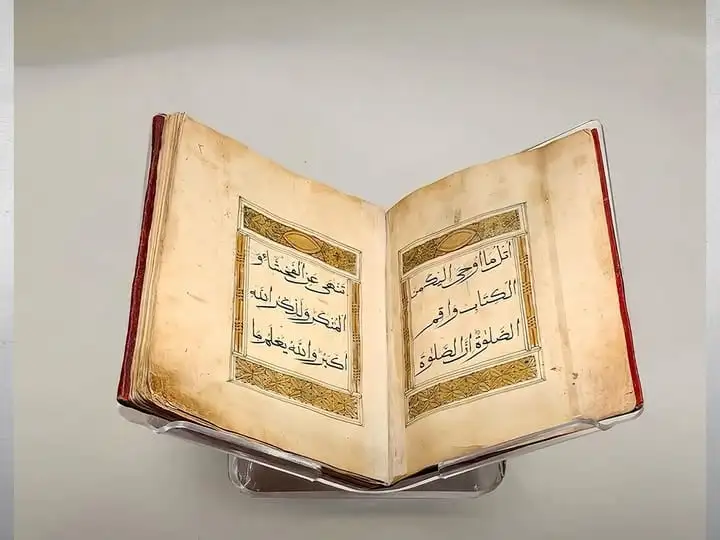 اتل ما اوحى اليك من
الكتاب واقم
الصلوٰة ان الصلوٰة
تنهى عن الفحشاء و
المنكر ولذكر الله
اكبر والله يعلم ما